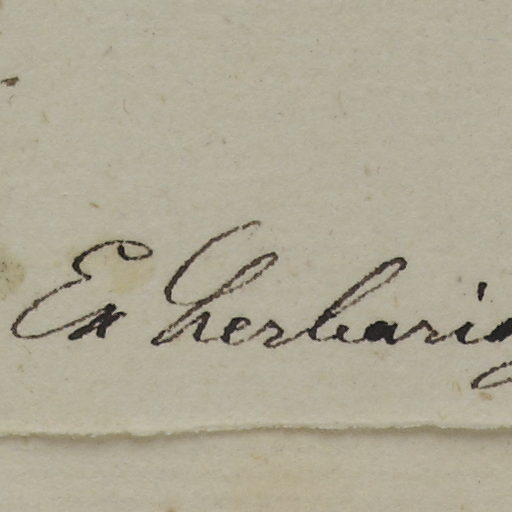 Ex herbario